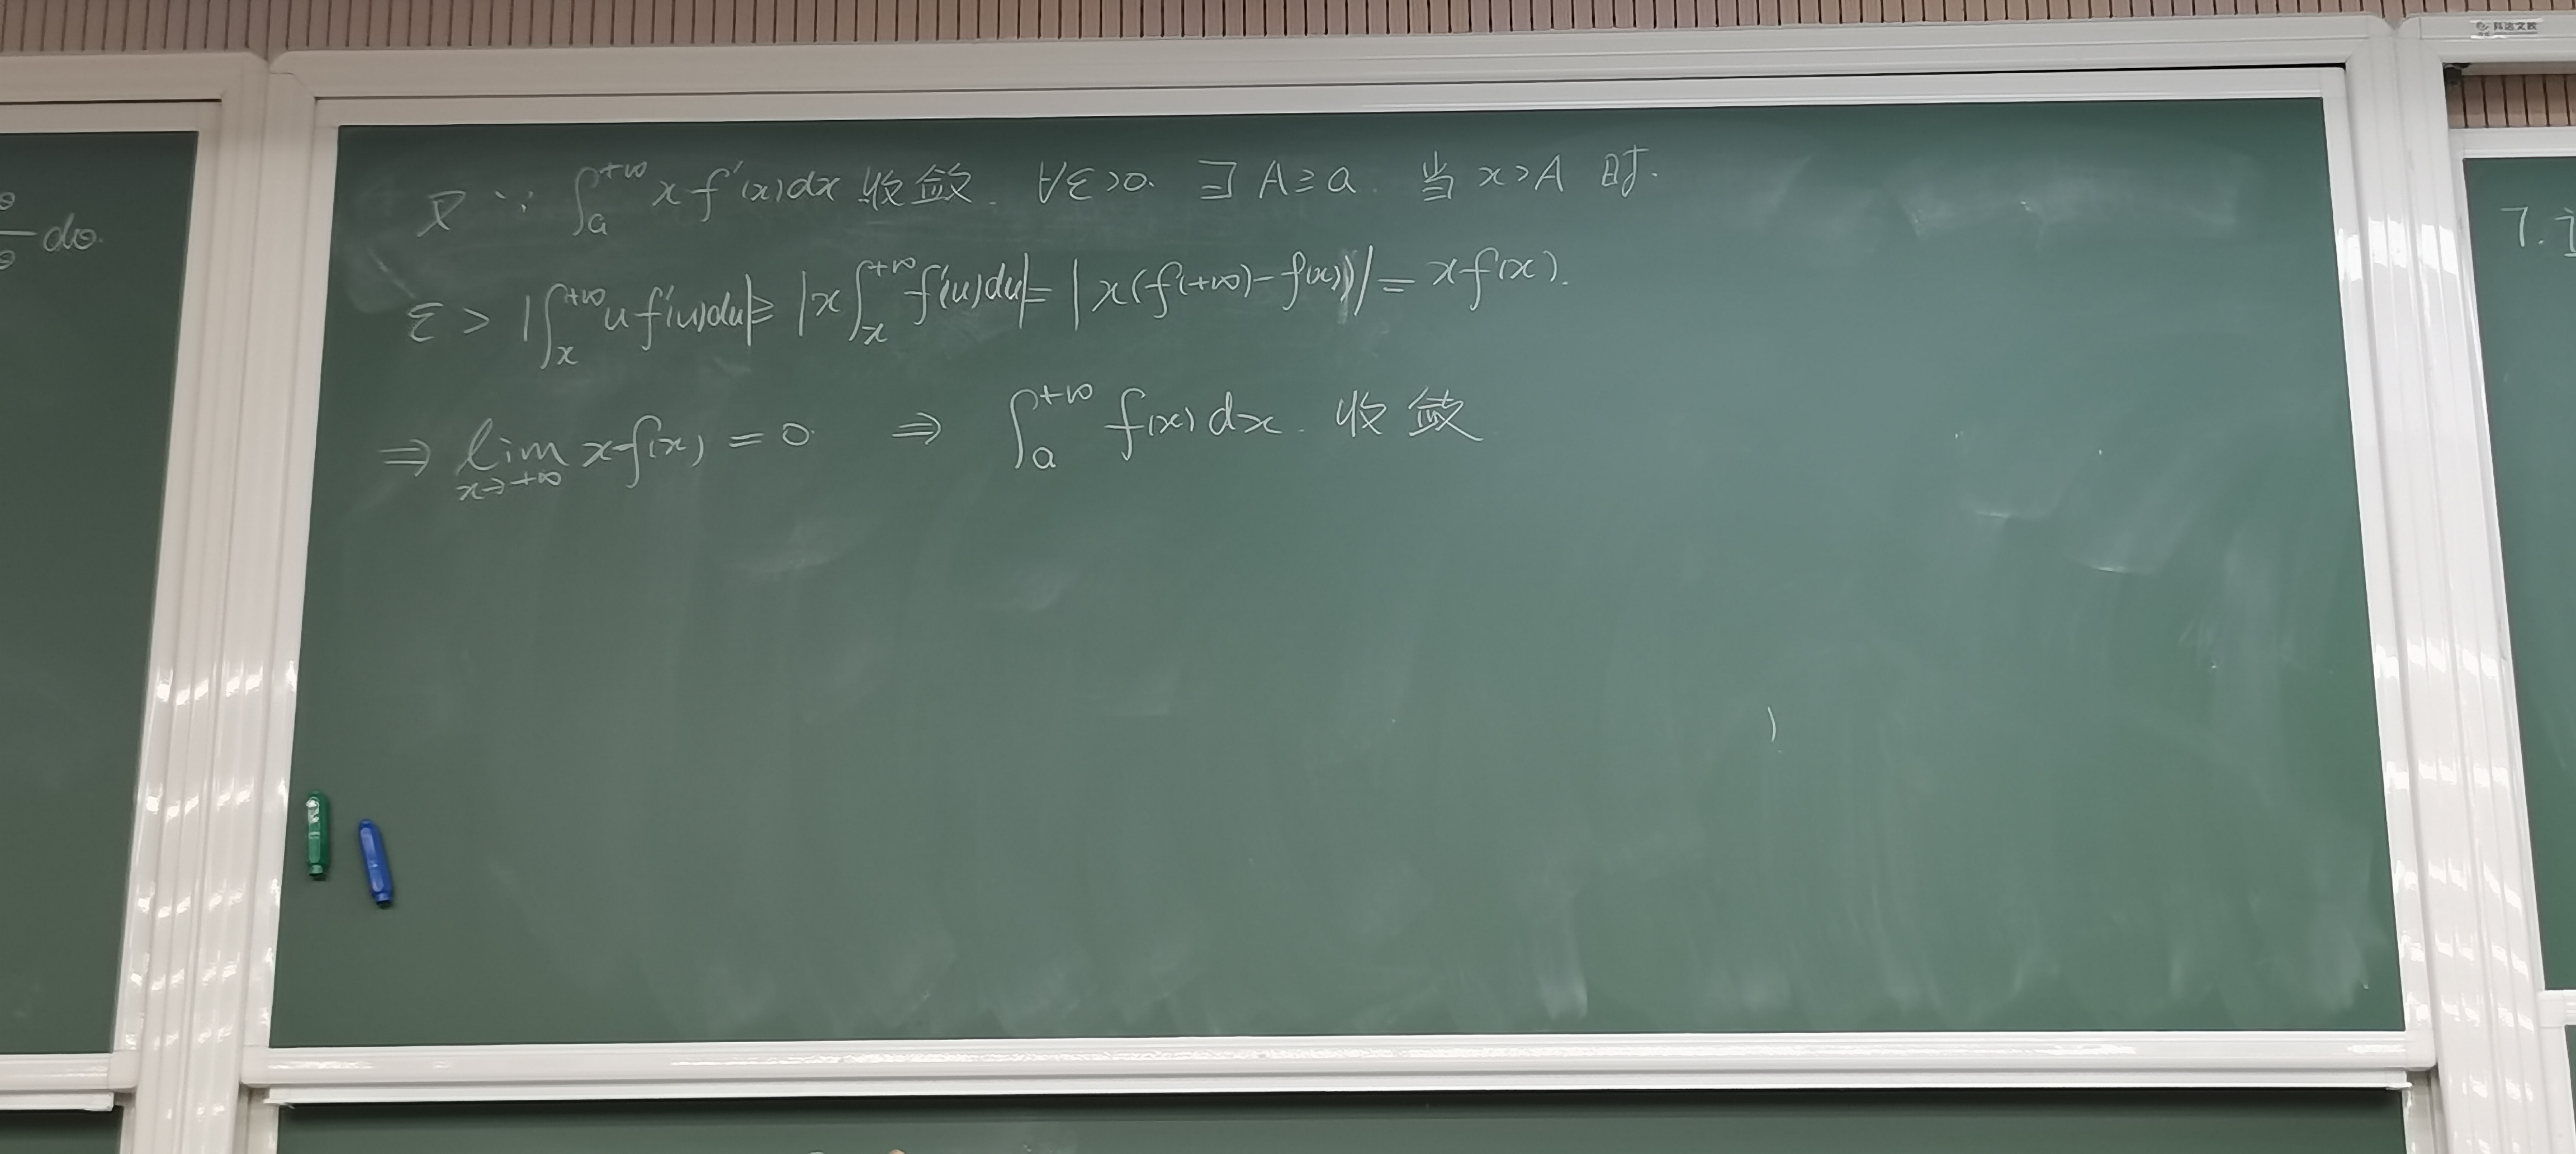 又∵ ∫ₐ⁺∞ x f'(x)dx 收敛. ∀ε>0. ∃ A≥a. 当 x>A 时.
ε > |∫ₓ⁺∞ u f'(u)du| ≥ |x∫ₓ⁺∞ f'(u)du| = |x(f(+∞)-f(x))| = x f(x).
⇒ lim x→+∞ x f(x) = 0. ⇒ ∫ₐ⁺∞ f(x)dx. 收敛
dθ.
7.